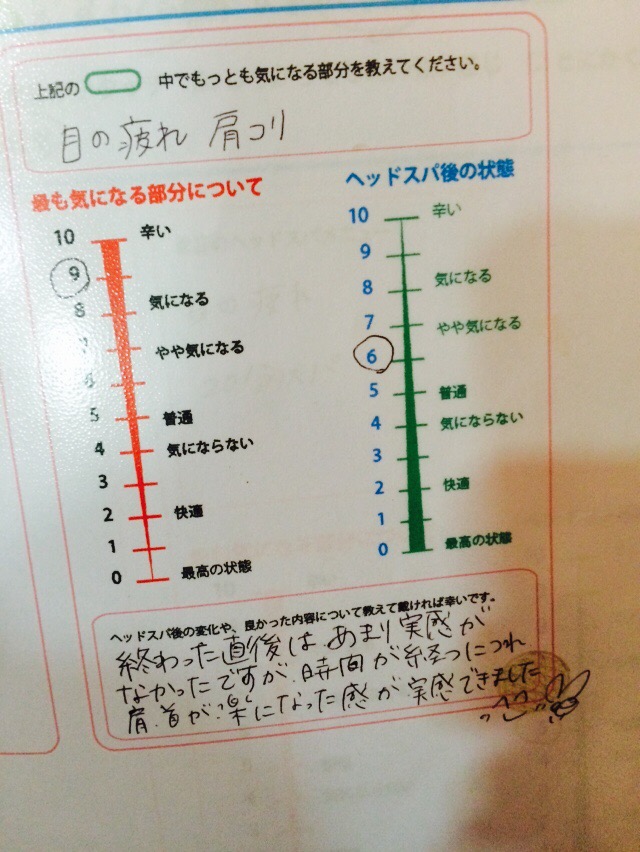 上記の 中でもっとも気になる部分を教えてください。
目の疲れ 肩コリ
最も気になる部分について
10 辛い
9
8 気になる
7 やや気になる
6
5 普通
4 気にならない
3
2 快適
1
0 最高の状態
ヘッドスパ後の状態
10 辛い
9
8 気になる
7 やや気になる
6
5 普通
4 気にならない
3
2 快適
1
0 最高の状態
ヘッドスパ後の変化や、良かった内容について教えて戴ければ幸いです。
終わった直後はあまり実感が
なかったですが、時間が経つにつれ
肩、首が楽になった感が実感できました